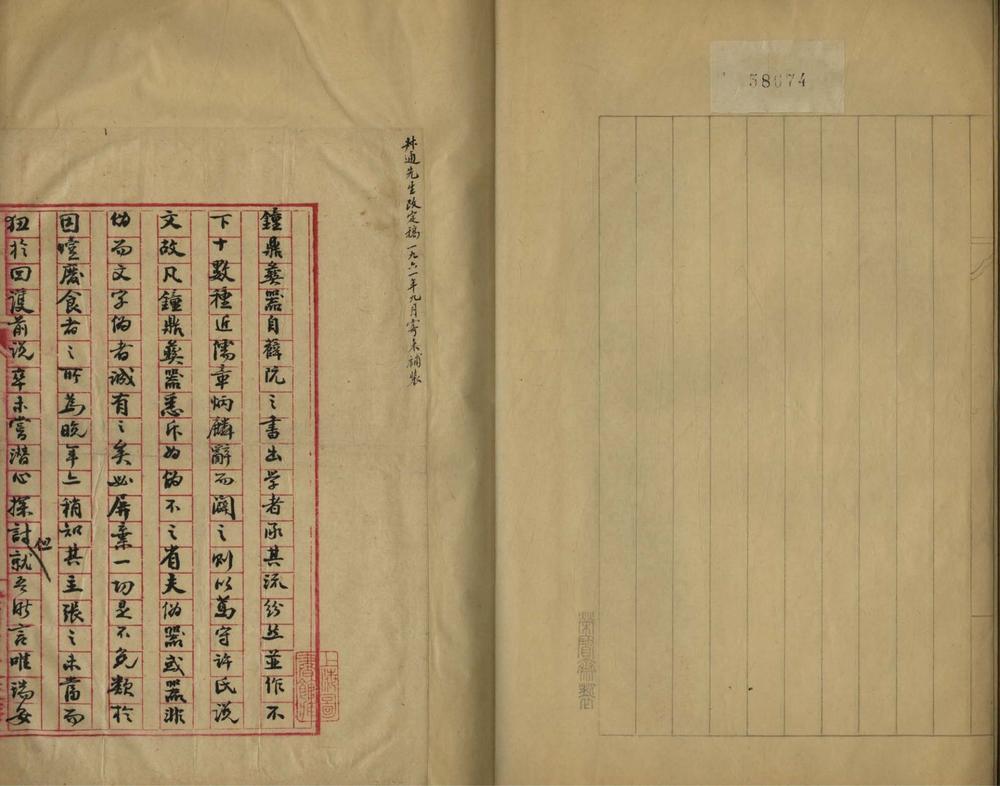 58674
叔通先生改定稿一九六一年九月寄来補裝
鐘鼎彝器自薛阮之書出学者承其流紛然並作不
下十數種近儒章炳麟辭而闢之則以篤守許氏説
文故凡鐘鼎彝器悉斥为偽不之省夫偽器或器非
偽而文字偽者誠有之矣必屏棄一切是不免類於
因噎廢食者之所為晚年亦稍知其主張之未當而
狃於回護前说卒未嘗潜心探討就吾所言唯瑞安
但
上海圖
書館藏
榮寶齋製